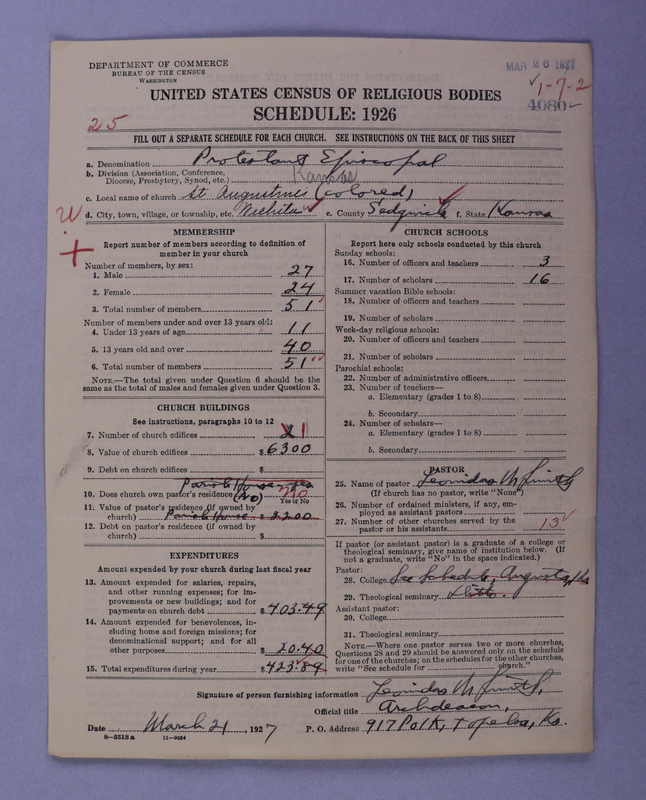 DEPARTMENT OF COMMERCE
BUREAU OF THE CENSUS
WASHINGTON
MAR 26 1927
1-7-2
4080
UNITED STATES CENSUS OF RELIGIOUS BODIES
SCHEDULE: 1926
25
FILL OUT A SEPARATE SCHEDULE FOR EACH CHURCH. SEE INSTRUCTIONS ON THE BACK OF THIS SHEET
a. Denomination Protestant Episcopal
b. Division (Association, Conference, Diocese, Presbytery, Synod, etc.) Kansas
c. Local name of church St Augustines (colored)
d. City, town, village, or township, etc. Wichita e. County Sedgwick f. State Kansas
MEMBERSHIP
Report number of members according to definition of
member in your church
Number of members, by sex:
1. Male 27
2. Female 24
3. Total number of members 51
Number of members under and over 13 years old:
4. Under 13 years of age 11
5. 13 years old and over 40
6. Total number of members 51
NOTE.—The total given under Question 6 should be
same as the total of males and females given under Question 3.
CHURCH BUILDINGS
See instructions, paragraphs 10 to 12
7. Number of church edifices 1
8. Value of church edifices $ 6300
9. Debt on church edifices $
Parish House yes
10. Does church own pastor's residence? (No) no
Yes or No
11. Value of pastor's residence (if owned by
church) Parish House $ 2200
12. Debt on pastor's residence (if owned by
church) $
EXPENDITURES
Amount expended by your church during last fiscal year
13. Amount expended for salaries, repairs,
and other running expenses; for im-
provements or new buildings; and for
payments on church debt $ 403.49
14. Amount expended for benevolences, in-
cluding home and foreign missions; for
denominational support; and for all
other purposes $ 20.40
15. Total expenditures during year $ 423.89
CHURCH SCHOOLS
Report here only schools conducted by this church
Sunday schools:
16. Number of officers and teachers 3
17. Number of scholars 16
Summer vacation Bible schools:
18. Number of officers and teachers
19. Number of scholars
Week-day religious schools:
20. Number of officers and teachers
21. Number of scholars
Parochial schools:
22. Number of administrative officers
23. Number of teachers—
a. Elementary (grades 1 to 8)
b. Secondary
24. Number of scholars—
a. Elementary (grades 1 to 8)
b. Secondary
PASTOR
25. Name of pastor Leonidas M Smith
(If church has no pastor, write "None")
26. Number of ordained ministers, if any, em-
ployed as assistant pastors
27. Number of other churches served by the
pastor or his assistants 13
If pastor (or assistant pastor) is a graduate of a college or
theological seminary, give name of institution below. (If
not a graduate, write "No" in the space indicated.)
Pastor:
28. College See Schedule, Augusta, Ks
29. Theological seminary ditto.
Assistant pastor:
30. College
31. Theological seminary
NOTE.—Where one pastor serves two or more churches,
Questions 28 and 29 should be answered only on the schedule
for one of the churches; on the schedules for the other churches,
write "See schedule for church."
Signature of person furnishing information Leonidas M Smith,
Official title Archdeacon,
Date March 21, 1927 P. O. Address 917 Polk, Topeka, Ks.
8—5518 a